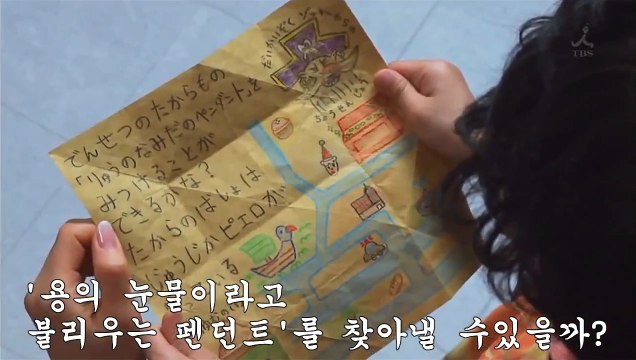 TBS
だいかいぞく
ちょうせんじょう
でんせつのたからもの
「りゅうのなみだのペンダント」を
みつけることが
できるかな?
たからのばしょは
ピエロが
いる
'용의 눈물이라고
불리우는 펜던트'를 찾아낼 수있을까?